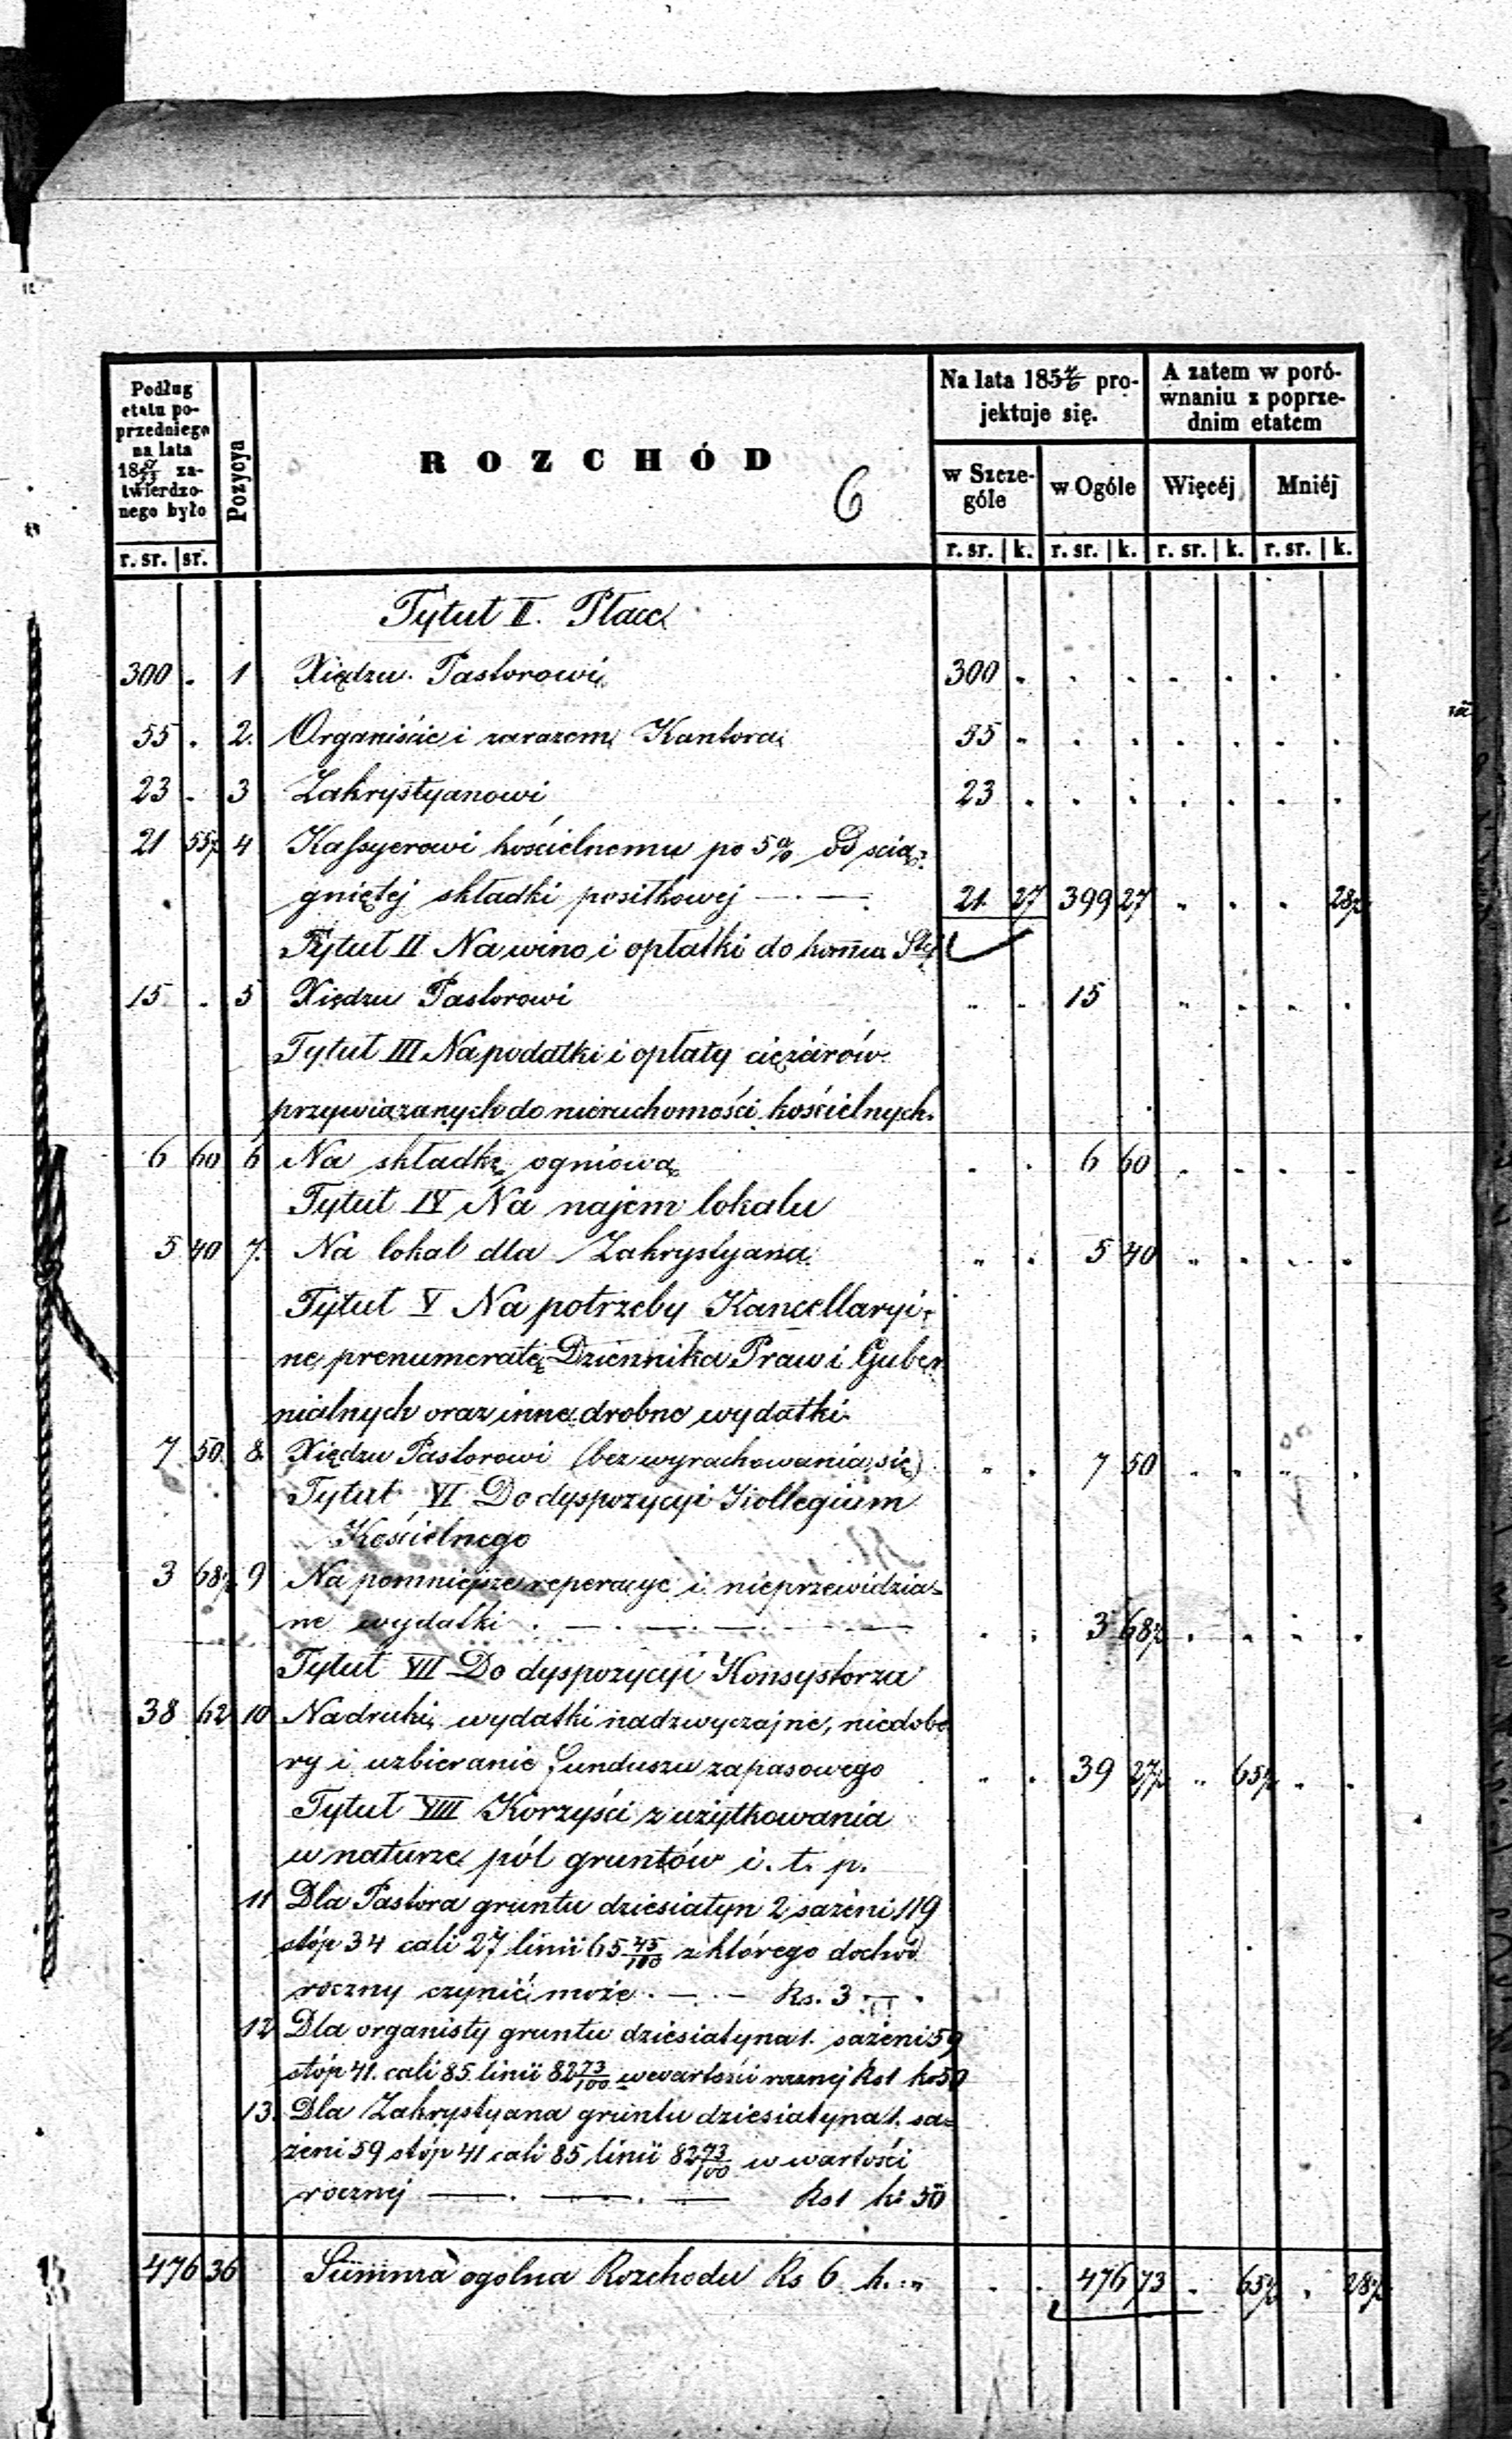 Podług etatu poprzedniego na lata 185 zatwierdzonego było
Pozycya
ROZCHÓD
6
Na lata 185 4/6 projektuje się.
A zatem w porównaniu z poprzednim etatem
w Szczególe
w Ogóle
Więcéj
Mniéj
r. sr. | sr.
r. sr. | k. r. sr. | k. r. sr. | k. r. sr. | k.
Tytuł II. Płace
300 . 1 Xiędzu Pastorowi 300 . . . . . . .
55 . 2. Organiście i zarazem Kantora 55 . . . . . . .
23 . 3 Zakrystyanowi 23 . . . . . . .
21 55½ 4 Kassyerowi kościelnemu po 5% od scią=
gniętej składki posiłkowej — . — . 21 27 399 27 . . . 28½
Tytuł II Na wino i opłatki do komu Stej
15 . 5 Xiędzu Pastorowi . . 15 . . . .
Tytuł III Na podatki i opłaty ciężarów
przywiązanych do nieruchomości kościelnych.
6 60 6 Na składkę ogniową . . 6 60 . . . .
Tytuł IV Na najem lokalu
5 40 7. Na lokal dla Zakrystyana . . 5 40 . . . .
Tytuł V Na potrzeby Kancellaryi=
ne prenumeratę Dziennika Praw i Guber
nialnych oraz inne drobne wydatki
7 50 8. Xiędzu Pastorowi (bez wyrachowania się) . . 7 50 . . . .
Tytuł VI Do dyspozycyi Kollegium
Kościelnego
3 68½ 9 Na pomniejsze reperacye i nieprzewidzia=
ne wydatki . — . — . — . — . . 3 68½ . . . .
Tytuł VII Do dyspozycyi Konsystorza
38 62 10 Na druki, wydatki nadzwyczajne, niedobo
ry i uzbieranie funduszu zapasowego . . 39 27½ . 65½ . .
Tytuł VIII Korzyści z użytkowania
w naturze pól gruntów i. t. p.
11 Dla Pastora gruntu dziesiatyn 2 sażeni 119
stóp 34 cali 27 linii 65 45/100 z którego dochód
roczny czynić może . — . — Rs. 3 — .
12 Dla organisty gruntu dziesiatyna 1. sażeni 59
stóp 41. cali 85. linii 82 73/100 w wartości rocznej Rs 1 k 50
13. Dla Zakrystyana gruntu dziesiatyna 1. sa=
żeni 59 stóp 41 cali 85 linii 82 73/100 w wartości
rocznej — . — . — Rs 1 k: 50
476 36 Summa ogolna Rozchodu Rs 6 k. „ . . 476 73 . 65½ . 28½